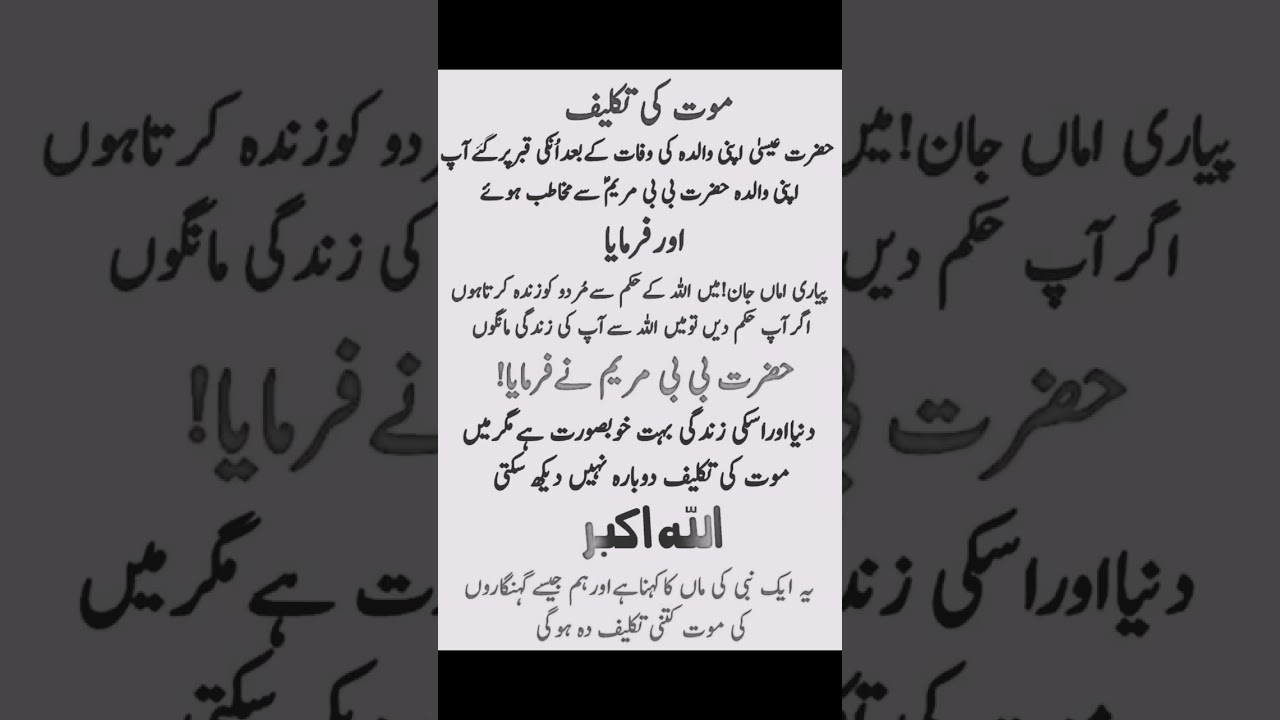 موت کی تکلیف
حضرت عیسیٰ اپنی والدہ کی وفات کے بعد اُنکی قبر پر گئے آپ
اپنی والدہ حضرت بی بی مریمؑ سے مخاطب ہوئے
اور فرمایا
پیاری اماں جان! میں اللہ کے حکم سے مُردو کو زندہ کرتا ہوں
اگر آپ حکم دیں تو میں اللہ سے آپ کی زندگی مانگوں
حضرت بی بی مریم نے فرمایا!
دنیا اور اسکی زندگی بہت خوبصورت ہے مگر میں
موت کی تکلیف دوبارہ نہیں دیکھ سکتی
اللّٰہ اکبر
یہ ایک نبی کی ماں کا کہنا ہے اور ہم جیسے گہنگاروں
کی موت کتنی تکلیف دہ ہوگی